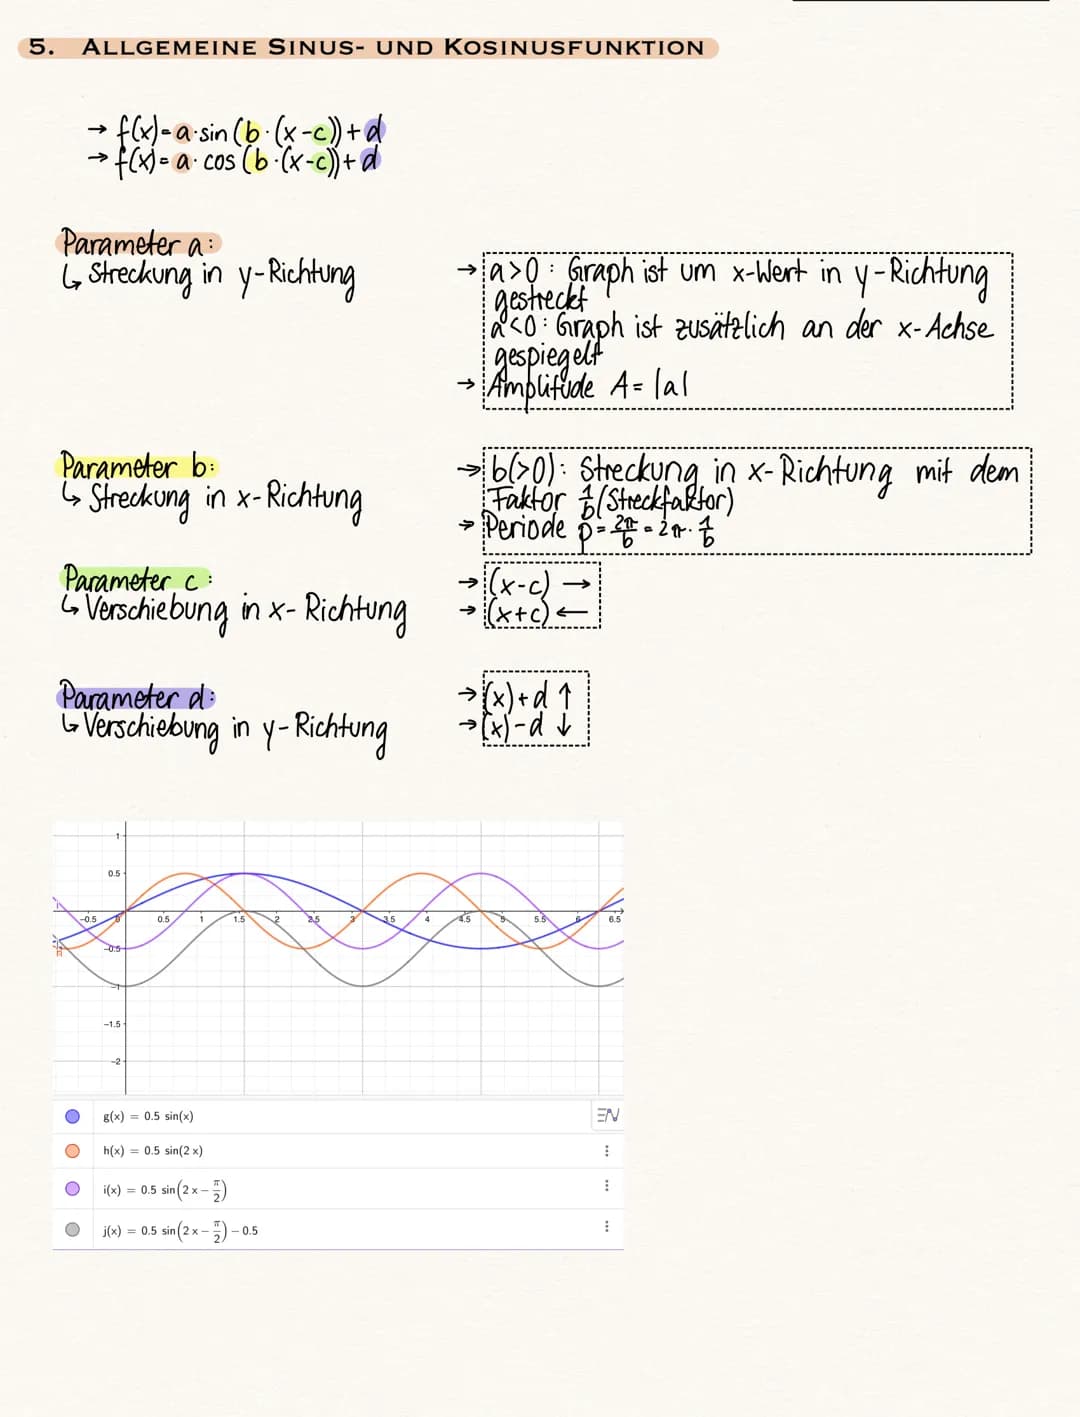 5. ALLGEMEINE SINUS- UND KOSINUSFUNKTION
→ f(x)=a·sin(b·(x-c))+d
→ f(x)=a·cos(b·(x-c))+d
Parameter a:
↳ Streckung in y-Richtung
→ a>0: Graph ist um x-Wert in y-Richtung
gestreckt
a<0: Graph ist zusätzlich an der x-Achse
gespiegelt
→ Amplitude A=|a|
Parameter b:
↳ Streckung in x-Richtung
→ b(>0): Streckung in x-Richtung mit dem
Faktor 1/b (Streckfaktor)
→ Periode p=2π/b=2π·1/b
Parameter c:
↳ Verschiebung in x-Richtung
→ (x-c) →
→ (x+c) ←
Parameter d:
↳ Verschiebung in y-Richtung
→ (x)+d ↑
→ (x)-d ↓
1
0.5
-0.5 0 0.5 1 1.5 2 2.5 3 3.5 4 4.5 5 5.5 6 6.5
-0.5
-1
-1.5
-2
g(x) = 0.5 sin(x)
h(x) = 0.5 sin(2 x)
i(x) = 0.5 sin(2 x − π/2)
j(x) = 0.5 sin(2 x − π/2) − 0.5